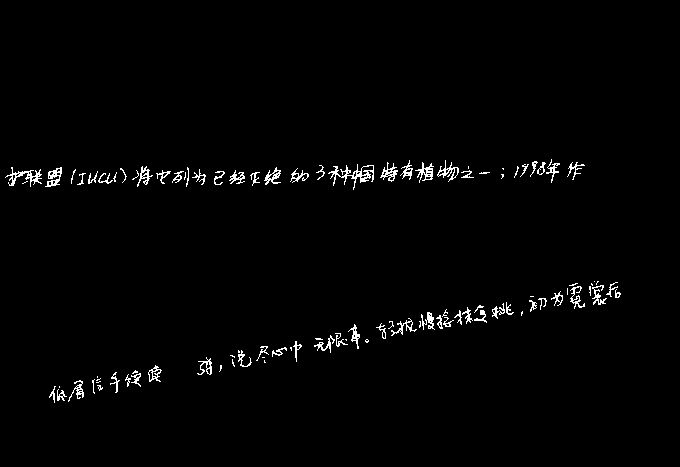 护联盟(IUCU)将它列为已经灭绝的3种中国特有植物之一;1998年作
低眉信手续续 弹,说尽心中无限事。轻拢慢捻抹复挑,初为霓裳后